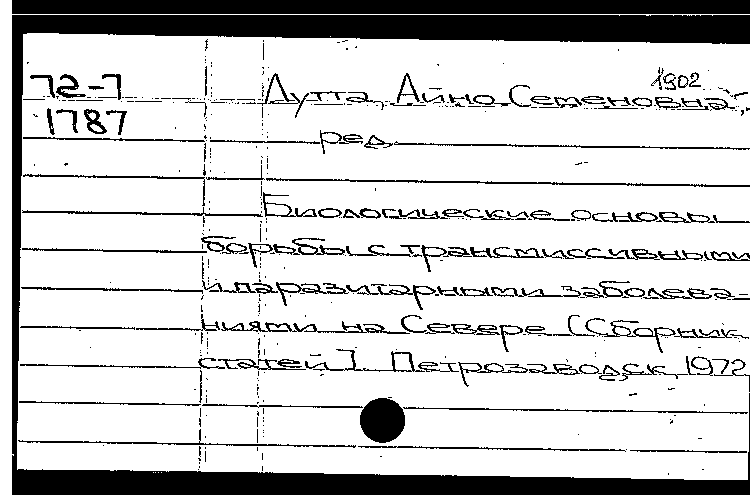 72-7
1787
1902
Лутта, Айно Семеновна,
ред.
Биологические основы
борьбы с трансмиссивными
и паразитарными заболева-
ниями на Севере [Сборник
статей]. Петрозаводск, 1972